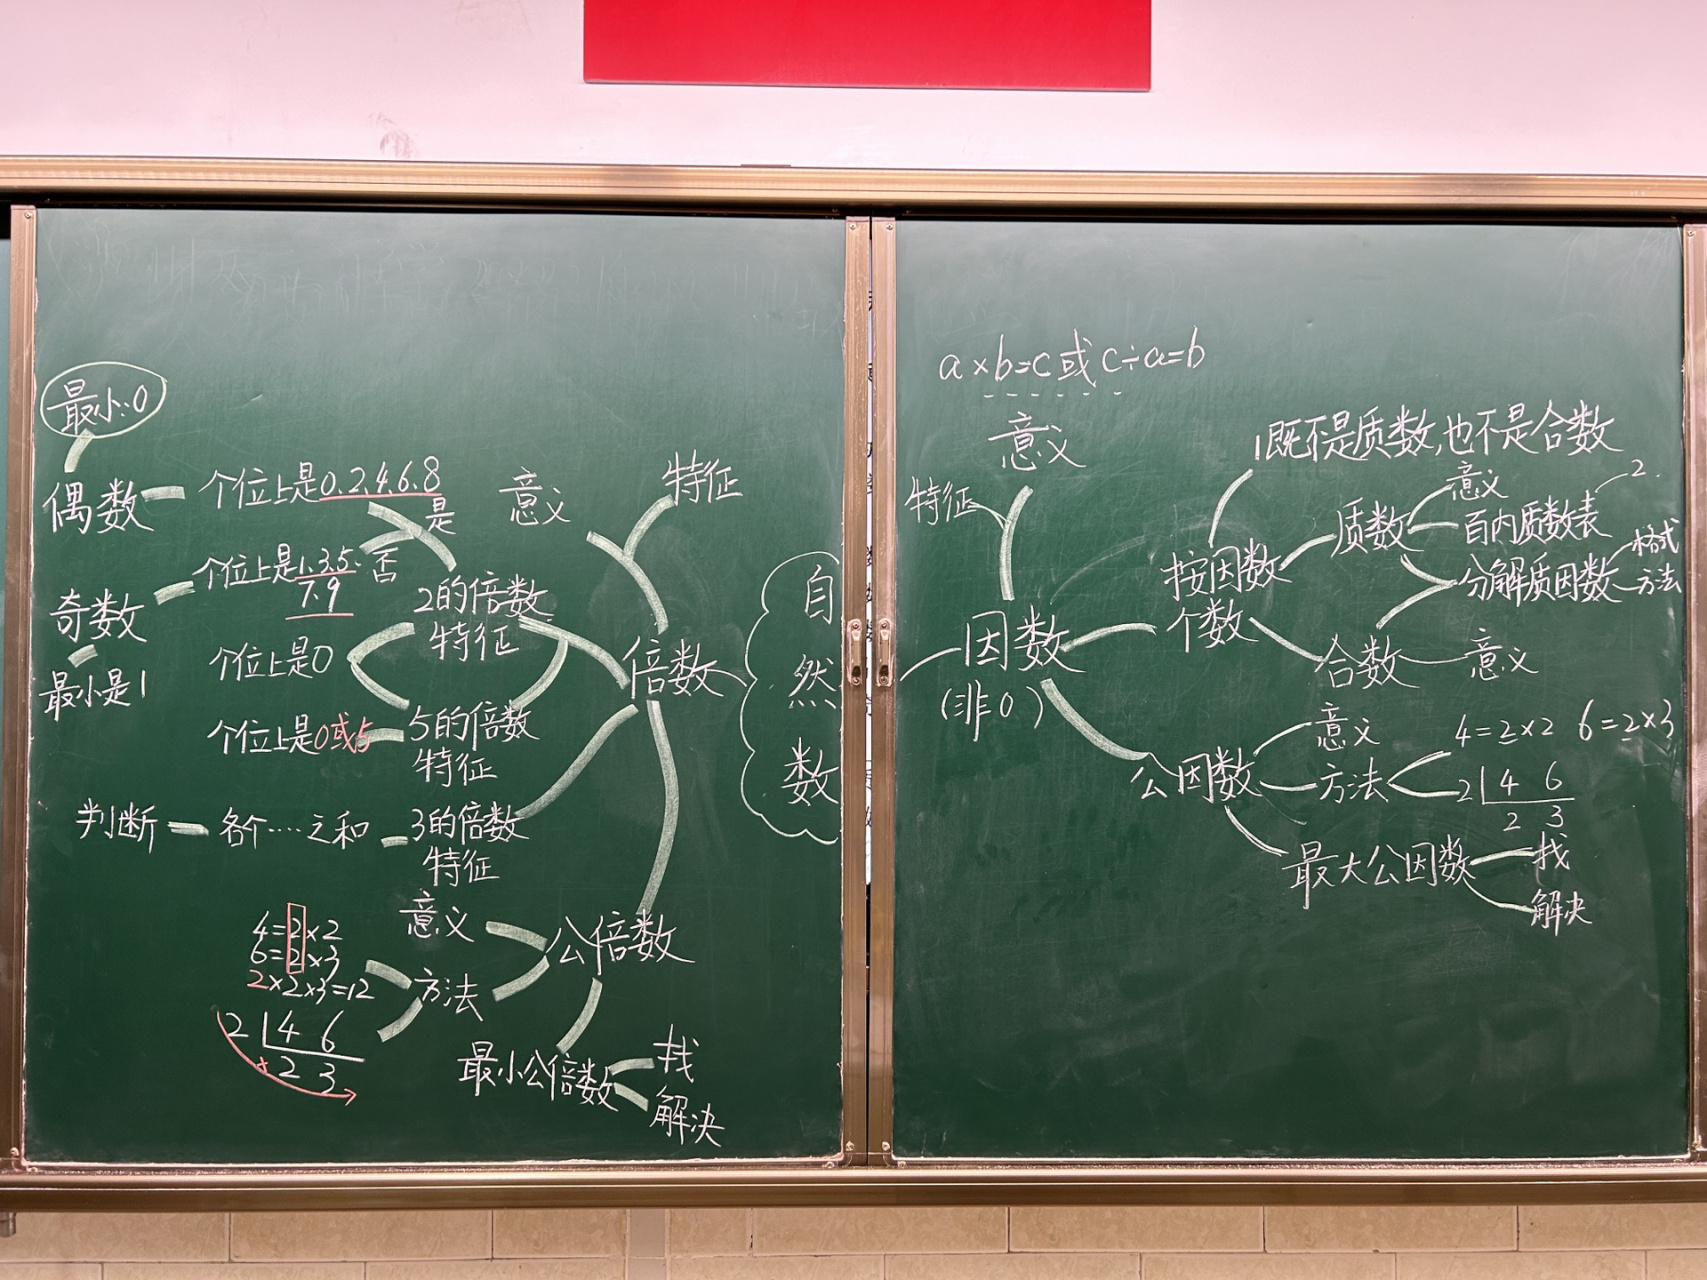 最小:0
偶数
个位上是0.2.4.6.8
是
个位上是1.3.5.
7.9
否
奇数
最小是1
个位上是0
个位上是0或5
判断
各个····之和
2的倍数
特征
5的倍数
特征
3的倍数
特征
意义
特征
倍数
自
然
数
意义
方法
公倍数
4=2×2
6=2×3
2×2×3=12
2 4 6
× 2 3
最小公倍数
找
解决
a×b=c或c÷a=b
意义
特征
因数
(非0)
按因数
个数
1既不是质数,也不是合数
质数
意义
百内质数表
2.
分解质因数
格式
方法
合数
意义
公因数
意义
方法
4=2×2 6=2×3
2 4 6
2 3
最大公因数
找
解决